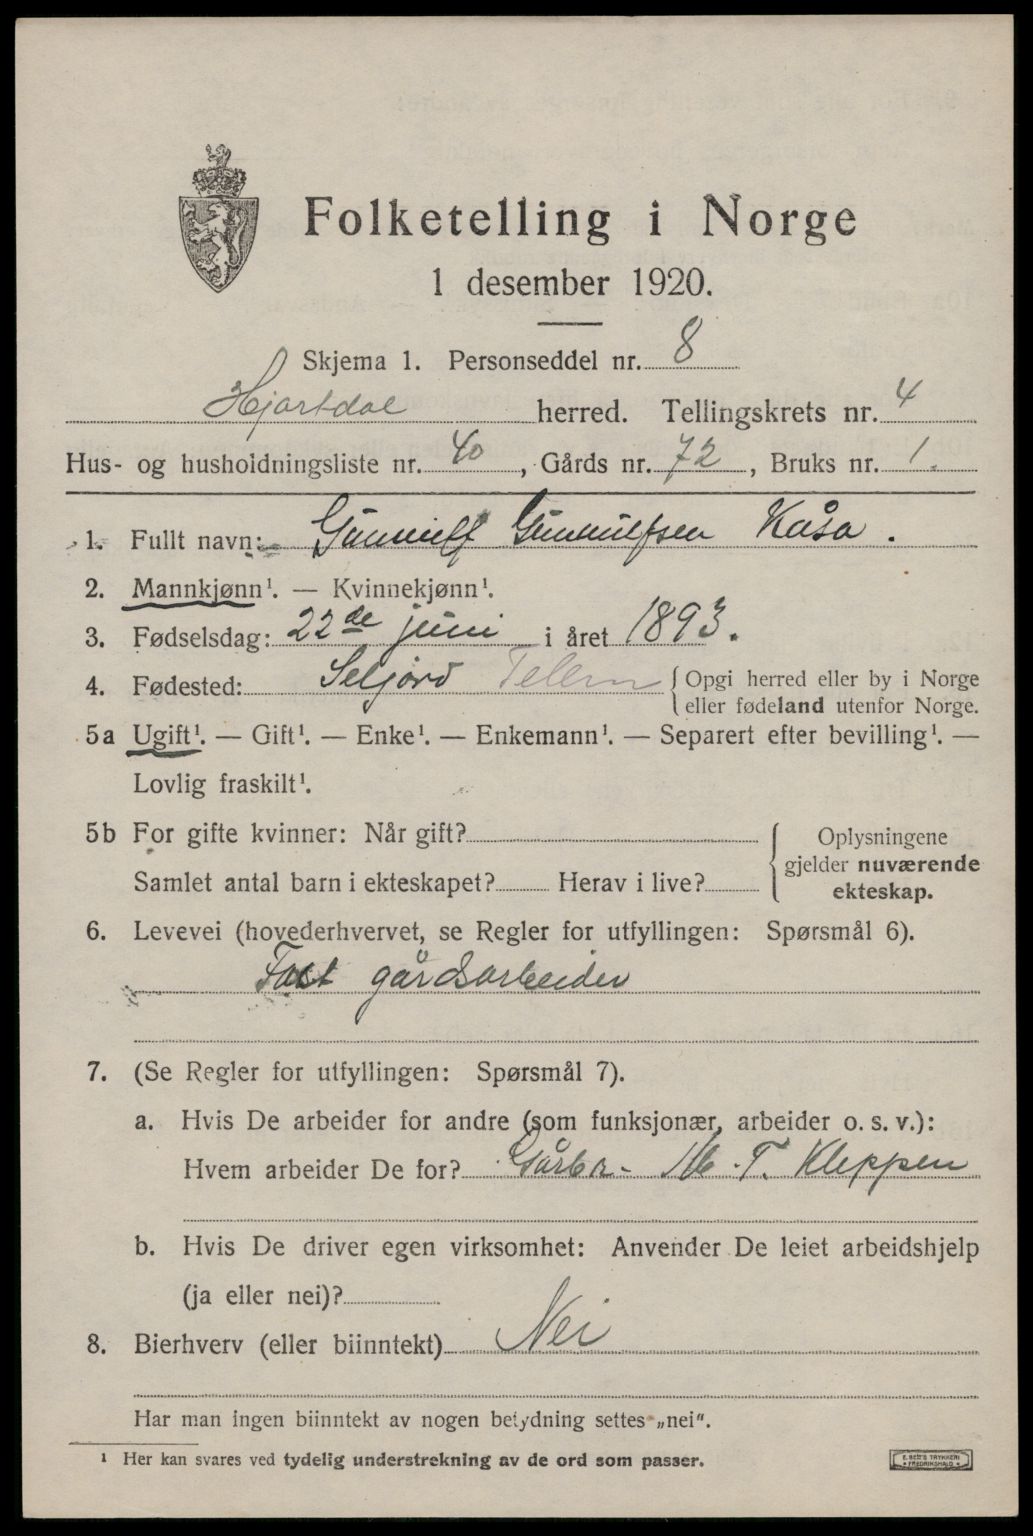 Folketelling i Norge
1 desember 1920.
Skjema 1. Personseddel nr. 8
Hjartdal herred. Tellingskrets nr. 4
Hus- og husholdningsliste nr. 40, Gårds nr. 72, Bruks nr. 1.
1. Fullt navn: Gunnulf Gunnulfsen Kåsa.
2. Mannkjønn¹. — Kvinnekjønn¹.
3. Fødselsdag: 22de juni i året 1893.
4. Fødested: Seljord Telem {Opgi herred eller by i Norge
eller fødeland utenfor Norge.
5a Ugift¹. — Gift¹. — Enke¹. — Enkemann¹. — Separert efter bevilling¹. —
Lovlig fraskilt¹.
5b For gifte kvinner: Når gift? { Oplysningene
gjelder nuværende
Samlet antal barn i ekteskapet? Herav i live?
ekteskap.
6. Levevei (hovederhvervet, se Regler for utfyllingen: Spørsmål 6).
Fast gårdsarbeider
7. (Se Regler for utfyllingen: Spørsmål 7).
a. Hvis De arbeider for andre (som funksjonær, arbeider o. s. v.):
Hvem arbeider De for? Gårbr. T. Kleppen
b. Hvis De driver egen virksomhet: Anvender De leiet arbeidshjelp
(ja eller nei)?
8. Bierhverv (eller biinntekt) Nei
Har man ingen biinntekt av nogen betydning settes „nei".
¹ Her kan svares ved tydelig understrekning av de ord som passer.
E. SEM'S TRYKKERI
FREDRIKSHALD